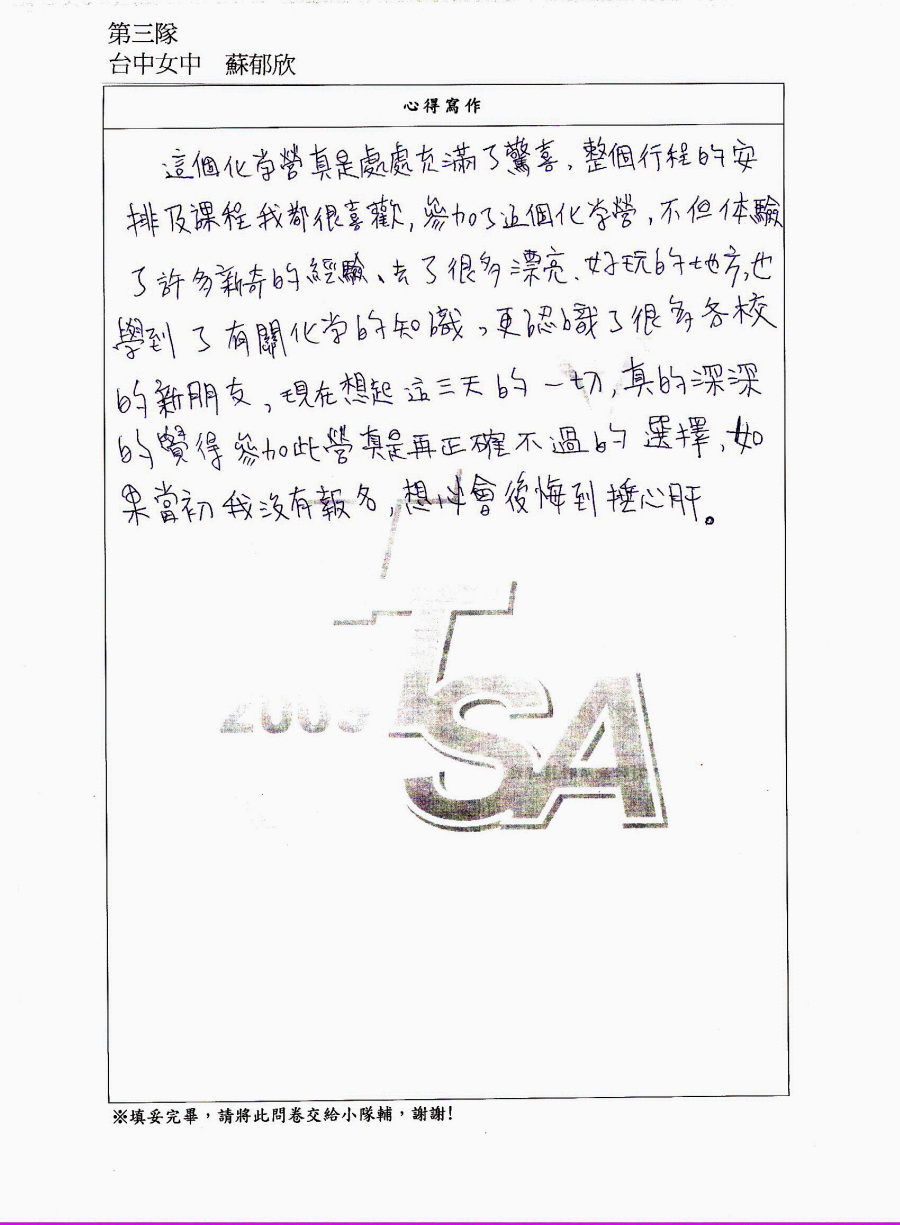 第三隊
台中女中 蘇郁欣
心得寫作
這個化学營真是處處充滿了驚喜,整個行程的安
排及課程我都很喜歡,參加了這個化学營,不但体驗
了許多新奇的經驗、去了很多漂亮、好玩的地方,也
學到了有關化学的知識,更認識了很多各校
的新朋友,現在想起這三天的一切,真的深深
的覺得參加此營真是再正確不過的選擇,如
果當初我沒有報名,想必會後悔到捶心肝。
2003
TSA
※填妥完畢,請將此問卷交給小隊輔,謝謝!